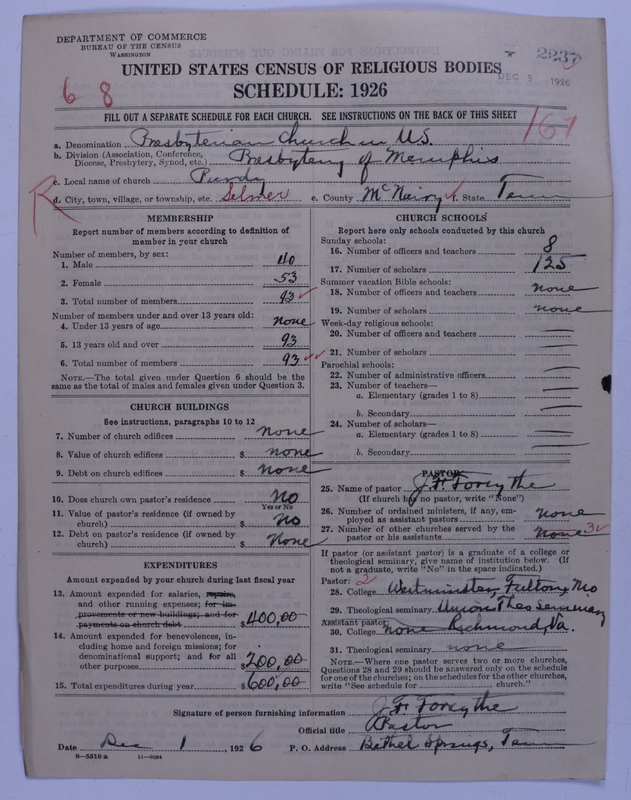 DEPARTMENT OF COMMERCE
BUREAU OF THE CENSUS
WASHINGTON
2237
DEC 3 1926
UNITED STATES CENSUS OF RELIGIOUS BODIES
SCHEDULE: 1926
6 8
FILL OUT A SEPARATE SCHEDULE FOR EACH CHURCH. SEE INSTRUCTIONS ON THE BACK OF THIS SHEET
167
a. Denomination Presbyterian Church in U.S.
b. Division (Association, Conference, Diocese, Presbytery, Synod, etc.) Presbytery of Memphis
c. Local name of church Purdy
R
d. City, town, village, or township, etc. Selmer e. County McNairy f. State Tenn
MEMBERSHIP
Report number of members according to definition of
member in your church
Number of members, by sex:
1. Male 40
2. Female 53
3. Total number of members 93
Number of members under and over 13 years old:
4. Under 13 years of age none
5. 13 years old and over 93
6. Total number of members 93
NOTE.—The total given under Question 6 should be the
same as the total of males and females given under Question 3.
CHURCH BUILDINGS
See instructions, paragraphs 10 to 12
7. Number of church edifices none
8. Value of church edifices $ none
9. Debt on church edifices $ none
10. Does church own pastor's residence No
Yes or No
11. Value of pastor's residence (if owned by
church) $ No
12. Debt on pastor's residence (if owned by
church) $ None
EXPENDITURES
Amount expended by your church during last fiscal year
13. Amount expended for salaries, repairs,
and other running expenses; for im-
provements or new buildings; and for
payments on church debt $ 400,00
14. Amount expended for benevolences, in-
cluding home and foreign missions; for
denominational support; and for all
other purposes $ 200,00
15. Total expenditures during year $ 600,00
CHURCH SCHOOLS
Report here only schools conducted by this church
Sunday schools:
16. Number of officers and teachers 8
17. Number of scholars 125
Summer vacation Bible schools:
18. Number of officers and teachers none
19. Number of scholars none
Week-day religious schools:
20. Number of officers and teachers
21. Number of scholars
Parochial schools:
22. Number of administrative officers
23. Number of teachers—
a. Elementary (grades 1 to 8)
b. Secondary
24. Number of scholars—
a. Elementary (grades 1 to 8)
b. Secondary
PASTOR
25. Name of pastor J. F. Forsythe
(If church has no pastor, write "None")
26. Number of ordained ministers, if any, em-
ployed as assistant pastors none
27. Number of other churches served by the
pastor or his assistants None 3
If pastor (or assistant pastor) is a graduate of a college or
theological seminary, give name of institution below. (If
not a graduate, write "No" in the space indicated.)
Pastor: 2
28. College Westminster, Fulton, Mo
29. Theological seminary Union Theo Seminary
Assistant pastor:
30. College none Richmond, Va.
31. Theological seminary none
NOTE.—Where one pastor serves two or more churches,
Questions 28 and 29 should be answered only on the schedule
for one of the churches; on the schedules for the other churches,
write "See schedule for church."
Signature of person furnishing information J F Forsythe
Official title Pastor
Date Dec 1, 1926 P. O. Address Bethel Springs, Tenn
8—5518a 11—9034